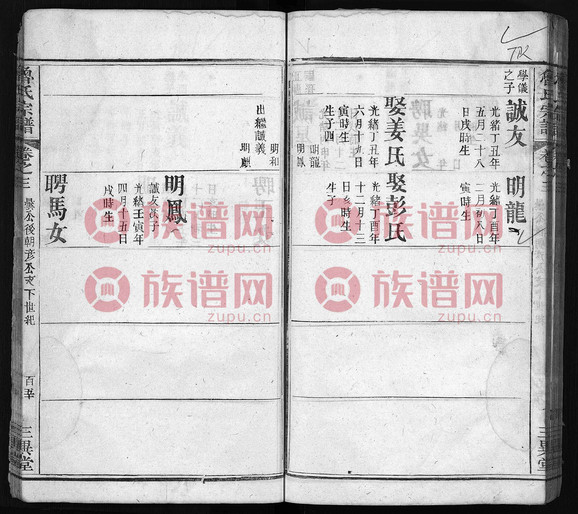 學儀之子
誠友
光緒丁丑年
五月二十八
日戌時生
娶姜氏
光緒丁丑年
六月十九日
寅時生
生子四
明龍
明和
出繼誠義
明鳳
明龍
光緒丁酉年
二月初八日
寅時生
娶彭氏
光緒丁酉年
十二月十三
日亥時生
生子
明鳳
誠友次子
光緒壬寅年
四月十五日
戌時生
聘馬女
氏宗譜
卷之三
後朝彥公支下世紀
三異堂
族谱网
zupu.cn
族谱网
zupu.cn
族谱网
zupu.cn
族谱网
zupu.cn